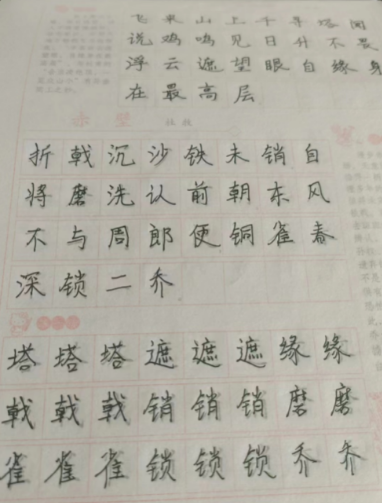 飞来山上千寻塔闻
说鸡鸣见日升不畏
浮云遮望眼自缘身
在最高层
赤壁 杜牧
折戟沉沙铁未销自
将磨洗认前朝东风
不与周郎便铜雀春
深锁二乔
塔塔塔遮遮遮缘缘
戟戟戟销销销磨磨
雀雀雀锁锁锁乔乔